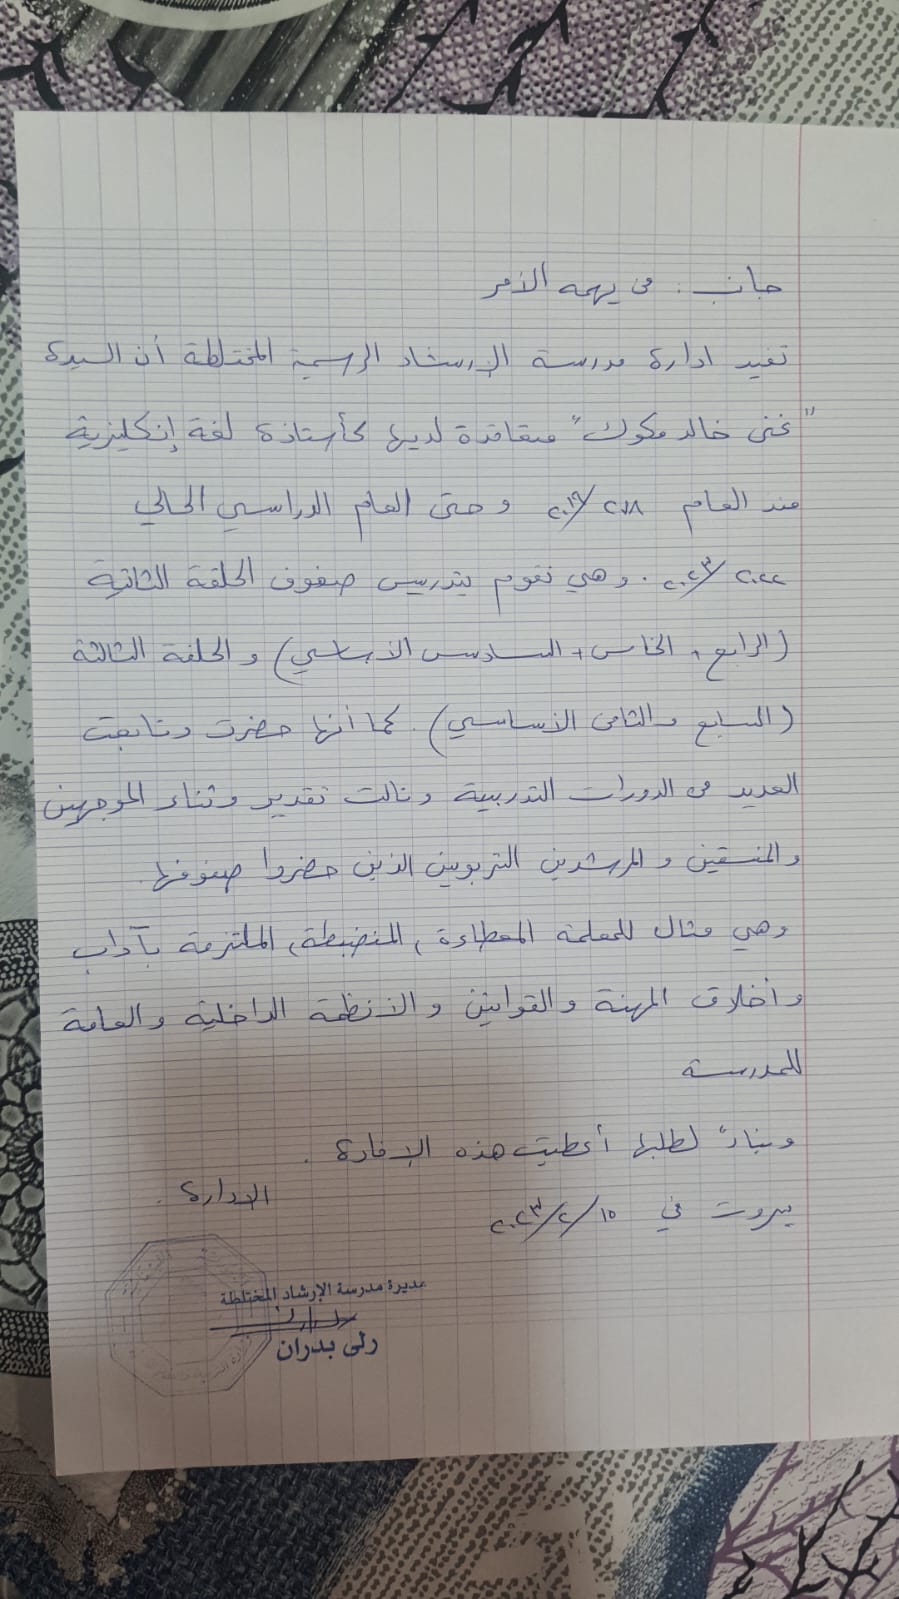 جانب: من يهمه الأمر
تفيد ادارة مدرسة الإرشاد الرسمية المختلطة أن السيدة
"غنى خالد مكوك" متعاقدة لديها كأستاذة لغة إنكليزية
منذ العام ٢٠١٨/٢٠١٩ وحتى العام الدراسي الحالي
٢٠٢٢/٢٠٢٣. وهي تقوم بتدريس صفوف الحلقة الثانية
(الرابع، الخامس، السادس الأساسي) و الحلقة الثالثة
(السابع والثامن الأساسي). كما أنها حضرت وتابعت
العديد من الدورات التدريبية ونالت تقدير وثناء الموجهين
والمنسقين والمرشدين التربويين الذين حضروا صفوفها.
وهي مثال للمعلمة المعطاءة، المنضبطة، الملتزمة بآداب
وأخلاق المهنة والقوانين والأنظمة الداخلية والعامة
للمدرسة
وبناءً لطلبها أعطيت هذه الإفادة.
الادارة.
بيروت في ١٥/٢/٢٠٢٣
مديرة مدرسة الإرشاد المختلطة
رلى بدران